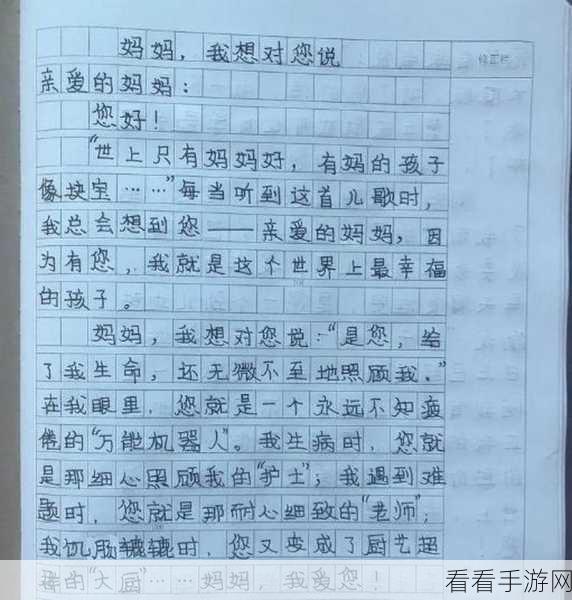 妈妈，我想对您说
亲爱的妈妈：
您好！
“世上只有妈妈好，有妈的孩子
像块宝……”每当听到这首儿歌时，
我总会想到您——亲爱的妈妈，因
为有您，我就是这个世界上最幸福
的孩子。
妈妈，我想对您说：“是您，给
了我生命，还无微不至地照顾我。”
在我眼里，您就是一个永远不知疲
倦的“万能机器人”。我生病时，您就
是那细心照顾我的“护士”；我遇到难
题时，您就是那耐心细致的“老师”；
我饥肠辘辘时，您又变成了厨艺超
群的“大厨”……妈妈，我爱您！
看看手游网